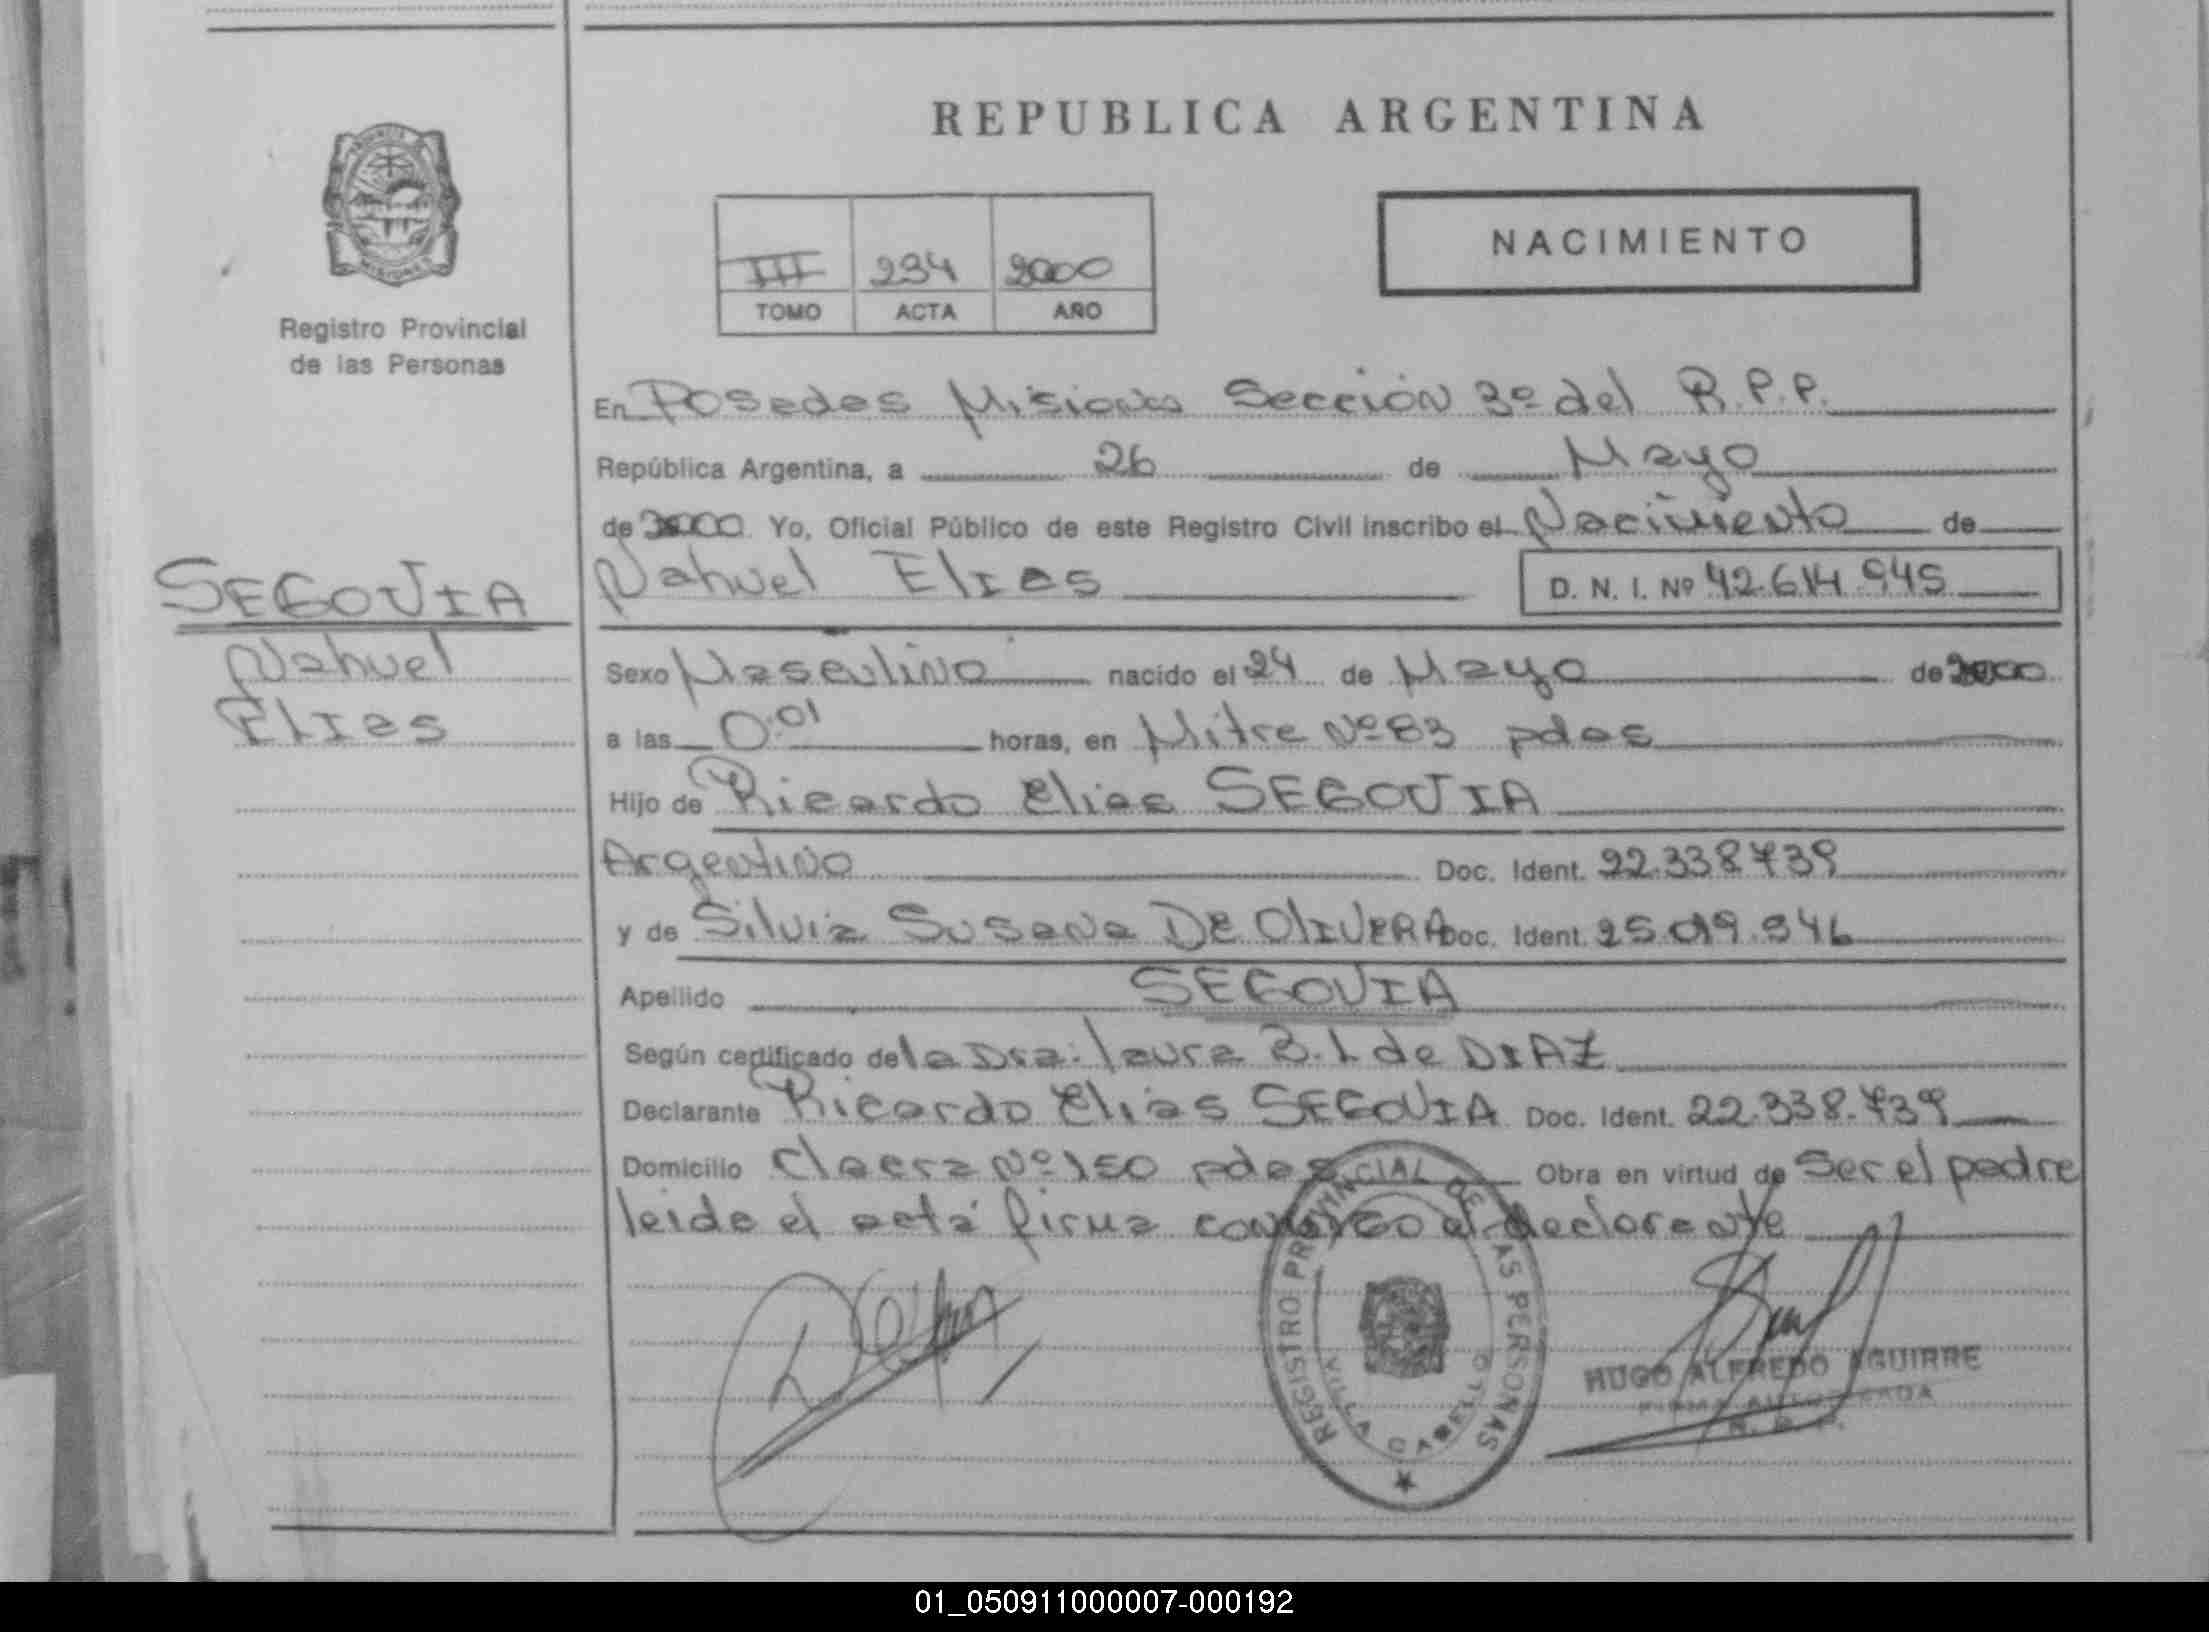 REPUBLICA ARGENTINA
NACIMIENTO
III 234 2000
TOMO ACTA AÑO
PROVINCIA
MISIONES
Registro Provincial
de las Personas
SEGOVIA
Nahuel
Elias
En Posadas Misiones Sección 3º del R.P.P.
República Argentina, a 26 de Mayo
de 2000 Yo, Oficial Público de este Registro Civil inscribo el Nacimiento de
Nahuel Elias D. N. I. Nº 42.614.945
Sexo Masculino nacido el 24 de Mayo de 2000
a las 0:01 horas, en Mitre Nº 83 pdas
Hijo de Ricardo Elias SEGOVIA
Argentino Doc. Ident. 22.338739
y de Silvia Susana DE OLIVERA Doc. Ident. 25.019.946
Apellido SEGOVIA
Según certificado de la Dra. Laura B. L de DIAZ
Declarante Ricardo Elias SEGOVIA Doc. Ident. 22.338.739
Domicilio Nº 150 pdas Obra en virtud de Ser el padre
leida el acta firma conmigo el declarante
REGISTRO PROVINCIAL DE LAS PERSONAS
VILLA CABELLO
HUGO ALFREDO AGUIRRE
FIRMA AUTORIZADA
R. P. P.
01_050911000007-000192